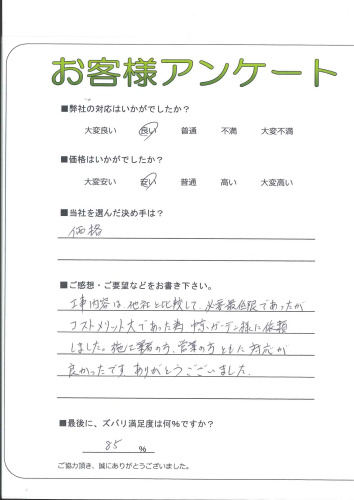 お客様アンケート
■弊社の対応はいかがでしたか?
大変良い 良い 普通 不満 大変不満
■価格はいかがでしたか?
大変安い 安い 普通 高い 大変高い
■当社を選んだ決め手は?
価格
■ご感想・ご要望などをお書き下さい。
工事内容は、他社と比較して、必要最低限であったが
コストメリット大であった為 ガーデン様に依頼
しました。施工業者の方、営業の方ともに対応が
良かったです ありがとうございました。
■最後に、ズバリ満足度は何%ですか?
85 %
ご協力頂き、誠にありがとうございました。